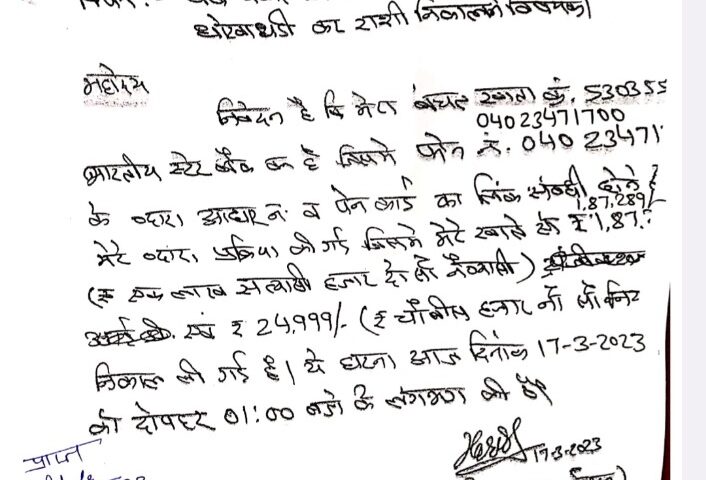 धोखाधडी का राशी निकालने विषयक।
महोदय
निवेदन है कि मेरा बचत खाता क्रं. 530355
04023471700
भारतीय स्टेट बैंक का है जिसमे फोन नं. 040 23471
के व्दारा आधार नं व पेन कार्ड का लिंक संबंधी होने है
1,87,289/-
मेरे व्दारा प्रक्रिया की गई जिसमे मेरे खाते से ₹ 1,87,
(₹ एक लाख सत्यासी हजार दो सौ नैव्यासी)
एवं ₹ 24,999/- (₹ चौबीस हजार नौ सौ
निकाल ली गई है। ये घटना आज दिनांक 17-3-2023
को दोपहर 01:00 बजे के लगभग की है।
17-3-2023
प्राप्त